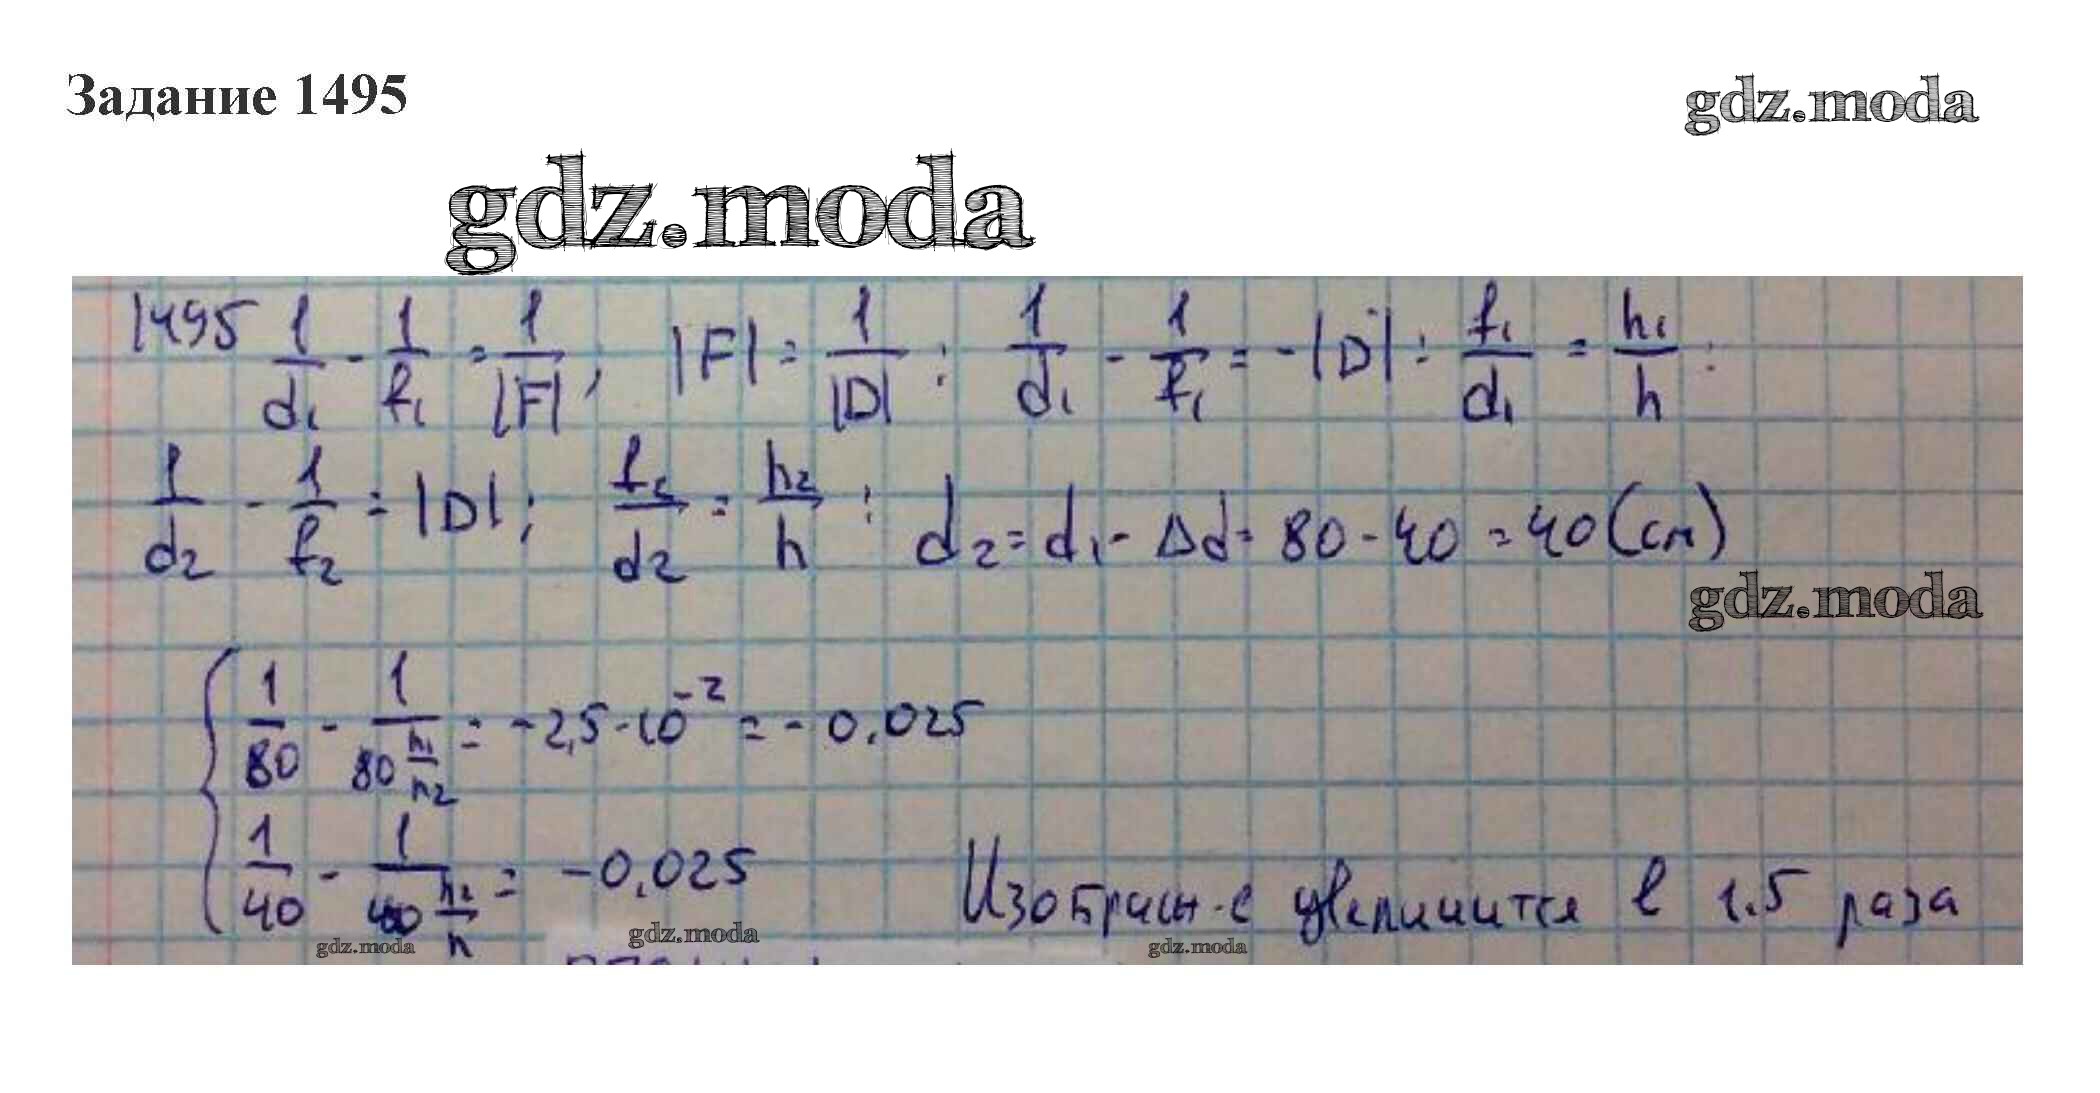 Задание 1495
gdz.moda
gdz.moda
1495 1/d₁ - 1/f₁ = 1/|F| ; |F| = 1/|D| ; 1/d₁ - 1/f₁ = -|D| ; f₁/d₁ = h₁/h ;
1/d₂ - 1/f₂ = |D| ; f₂/d₂ = h₂/h ; d₂ = d₁ - Δd = 80 - 40 = 40 (см)
gdz.moda
{ 1/80 - 1/(80 h₁/h₂) = -2,5·10⁻² = -0,025
1/40 - 1/(40 h₂/h) = -0,025 Изображ-е увеличится в 1.5 раза
gdz.moda gdz.moda gdz.moda